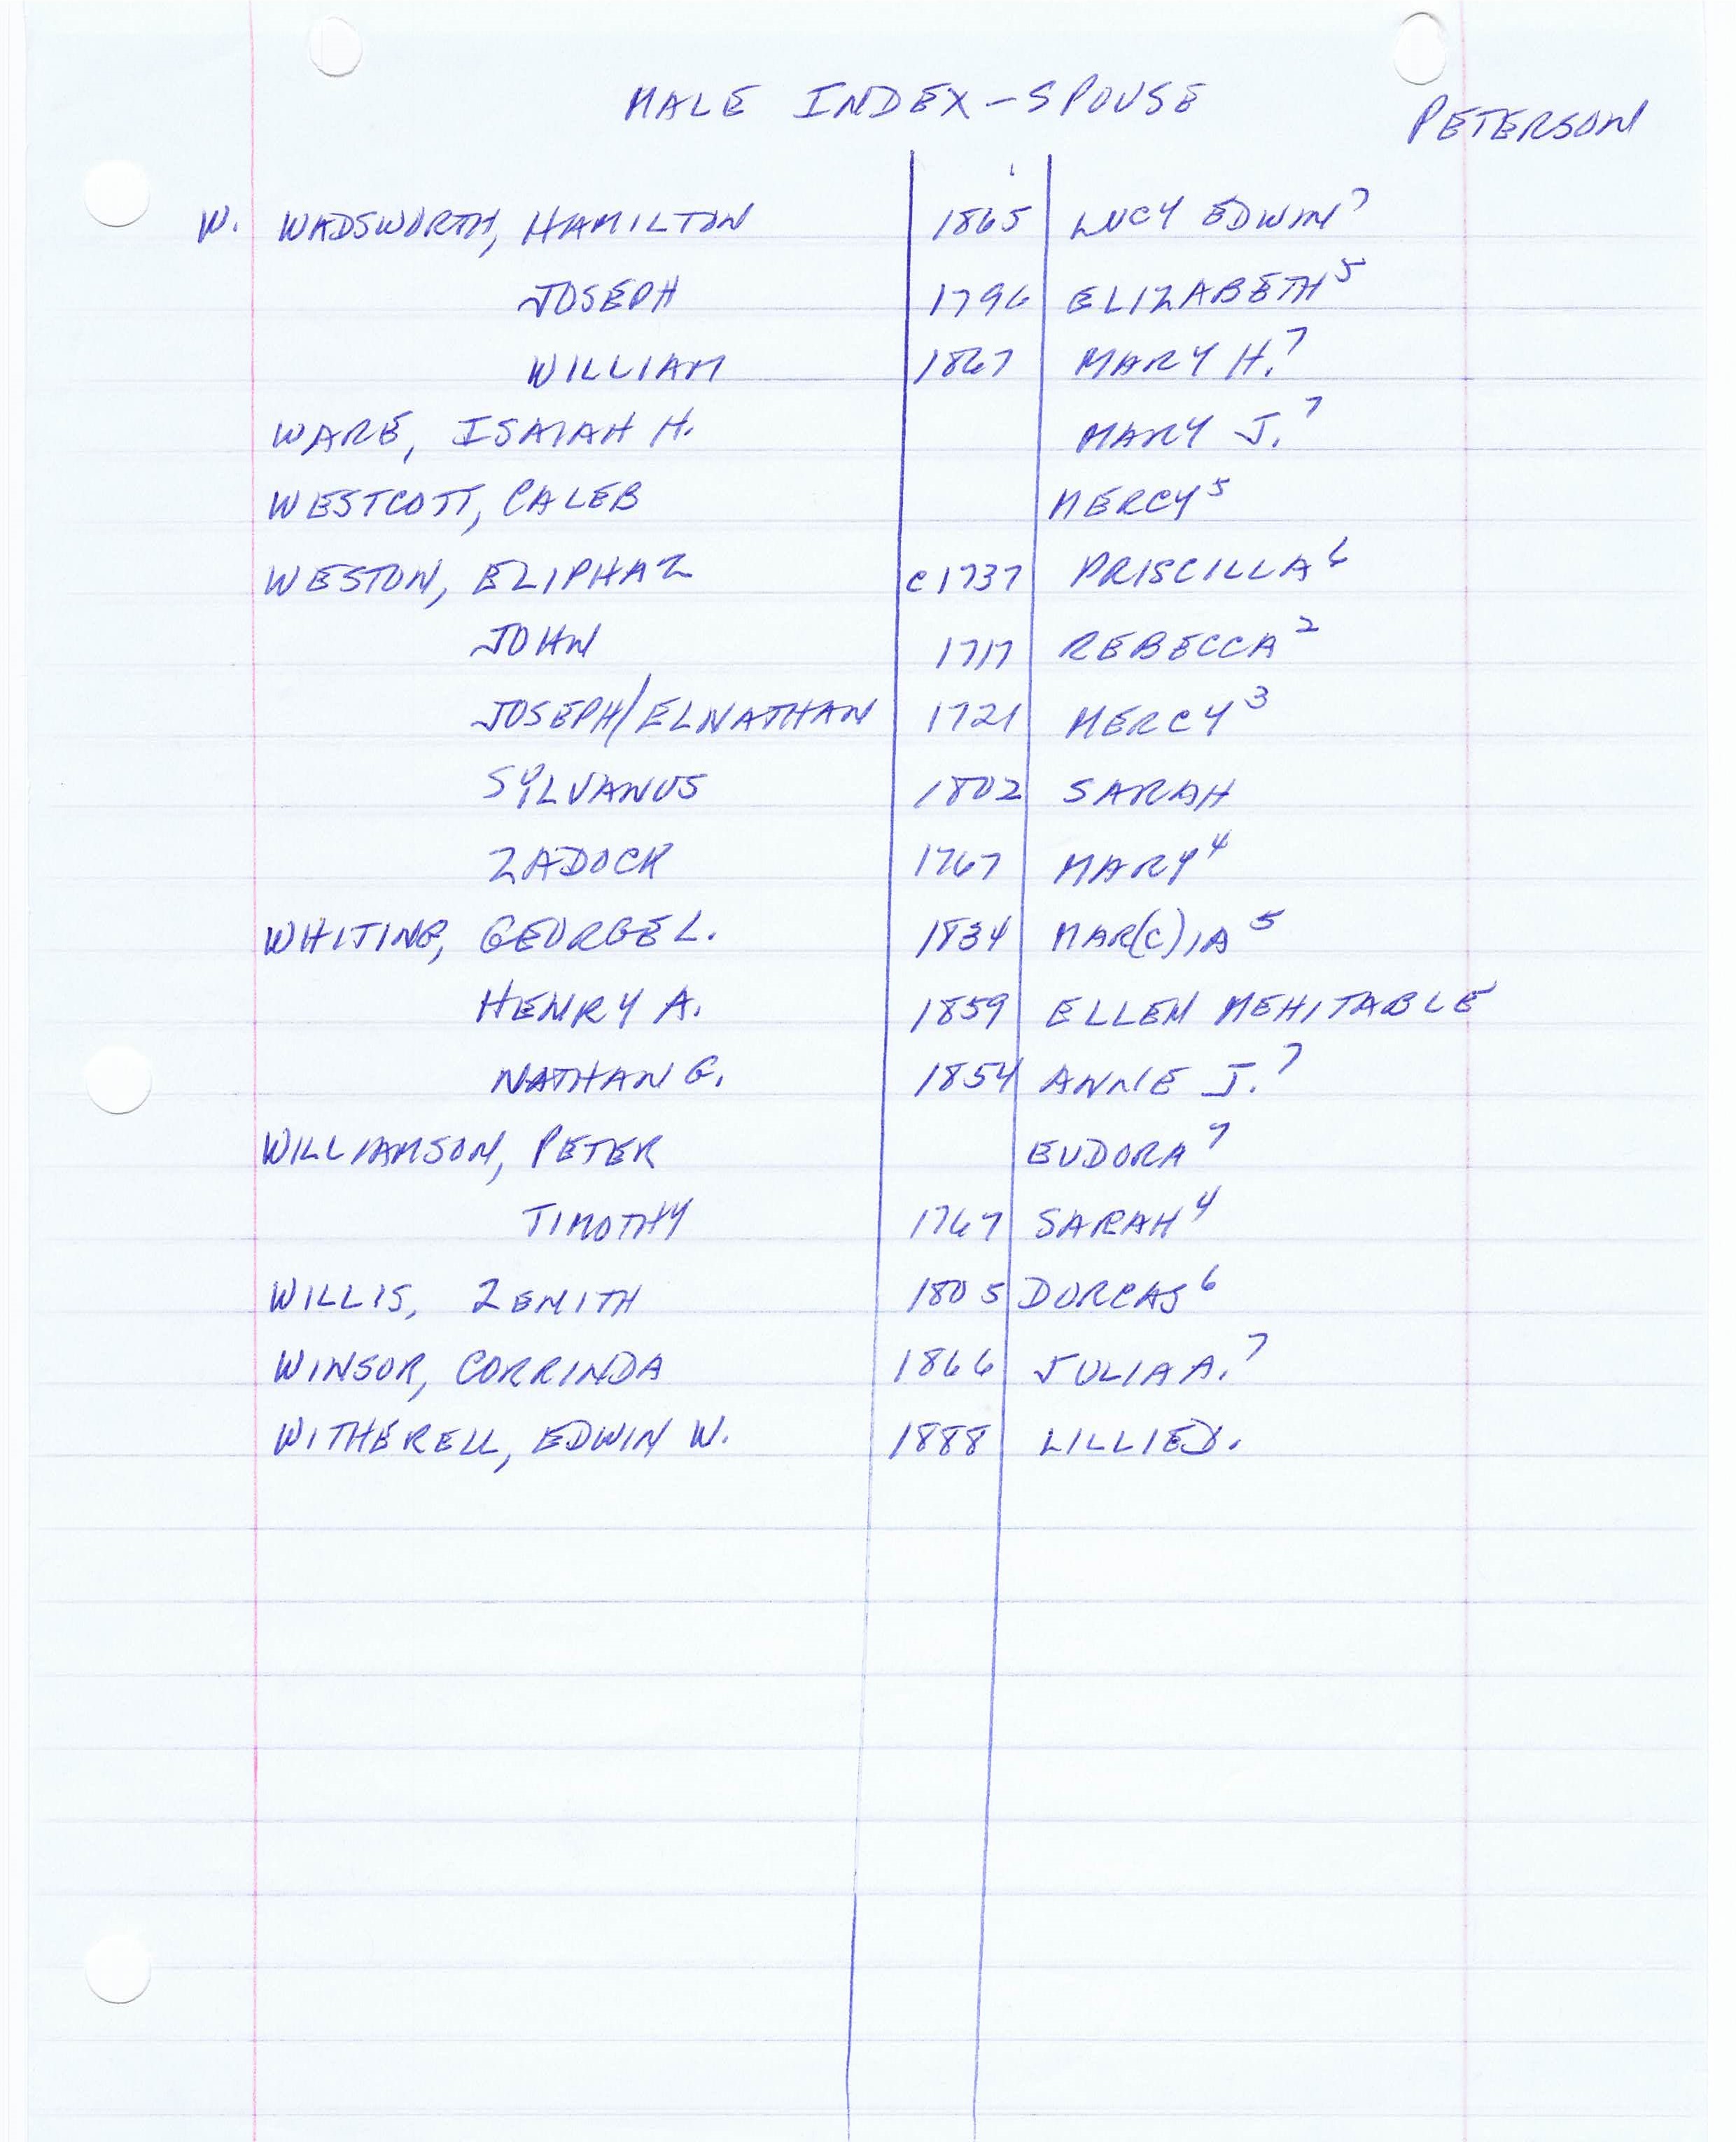 MALE INDEX - SPOUSE
PETERSON
W. WADSWORTH, HAMILTON 1865 LUCY EDWIN⁷
JOSEPH 1796 ELIZABETH⁵
WILLIAM 1867 MARY H.⁷
WARE, ISAIAH H. MARY J.⁷
WESTCOTT, CALEB MERCY⁵
WESTON, ELIPHAZ c1737 PRISCILLA⁶
JOHN 1717 REBECCA²
JOSEPH/ELNATHAN 1721 MERCY³
SYLVANUS 1802 SARAH
ZADOCK 1767 MARY⁴
WHITING, GEORGE L. 1834 MAR(C)IA⁵
HENRY A. 1859 ELLEN MEHITABLE
NATHAN G. 1854 ANNE J.⁷
WILLIAMSON, PETER EUDORA⁷
TIMOTHY 1767 SARAH⁴
WILLIS, ZENITH 1805 DORCAS⁶
WINSOR, CORRINDA 1866 JULIA A.⁷
WITHERELL, EDWIN W. 1888 LILLIE D.